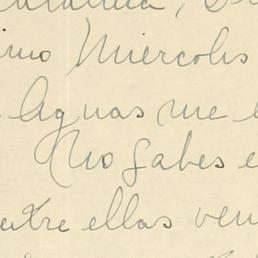 imo Miercolis
Aguas me
No sabes e
entre ellas ven